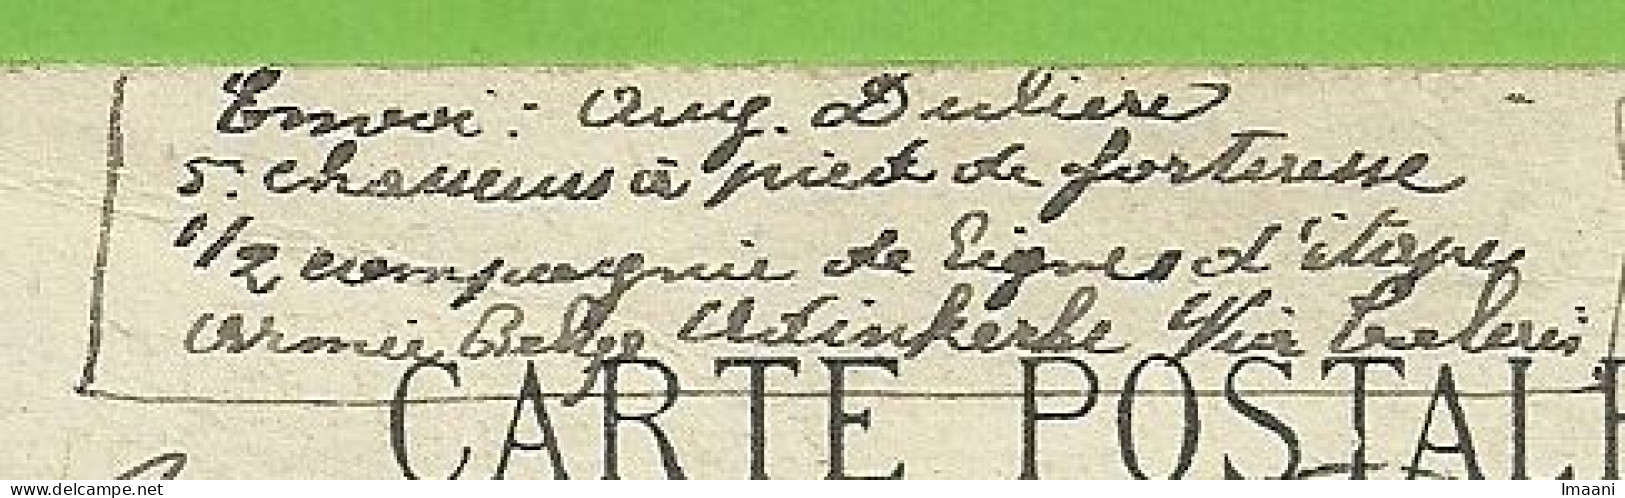 Envoi: Aug. Duliere
5. chasseurs à pied de forteresse
1/2 compagnie de Lignes d'étapes
Armée Belge Adinkerke Via Calais
CARTE POSTALE
delcampe.net
Imaani